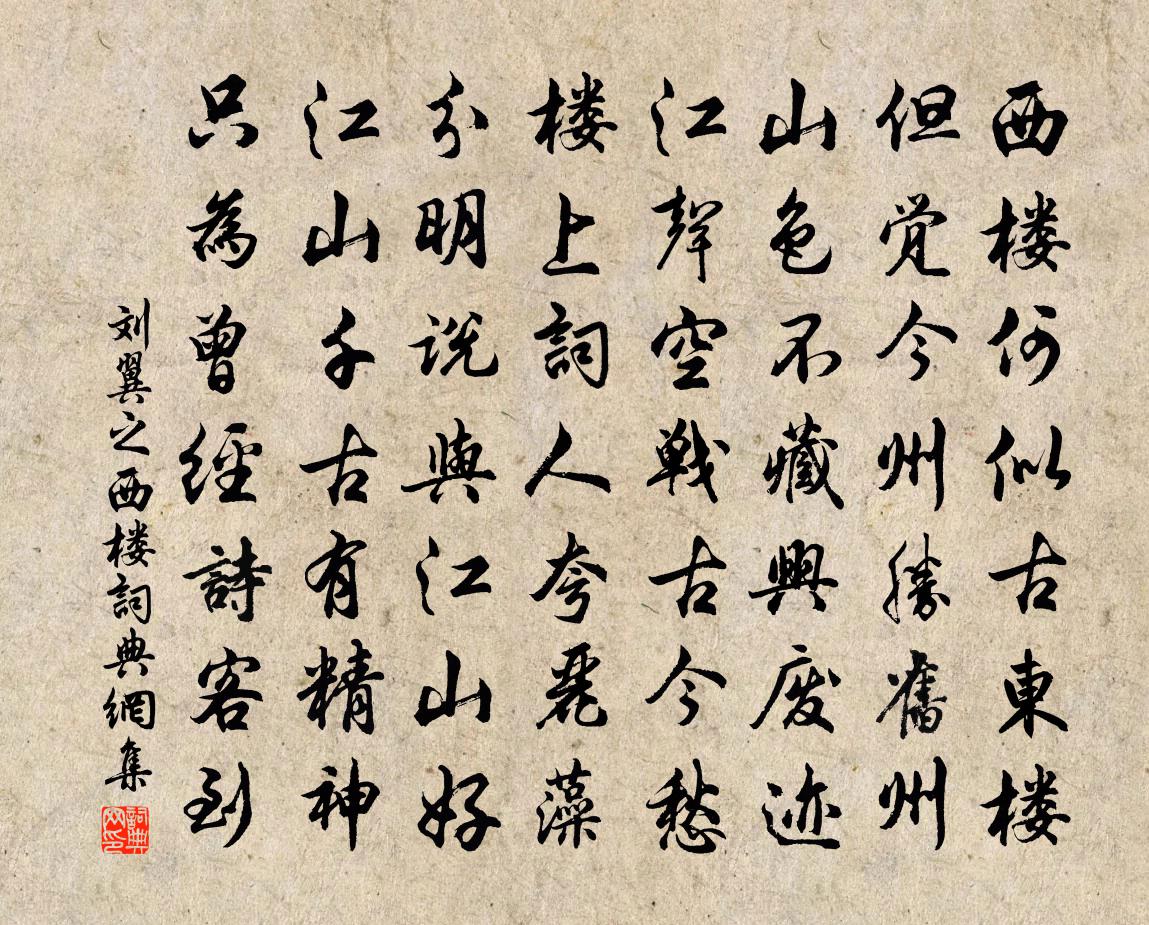 西楼何似古東楼
但觉今州勝舊州
山色不藏興废迹
江聲空戦古今愁
楼上詞人夸麗藻
分明说與江山好
江山千古有精神
只為曾經詩客到
刘翼之西楼詞典網集
詞典網印